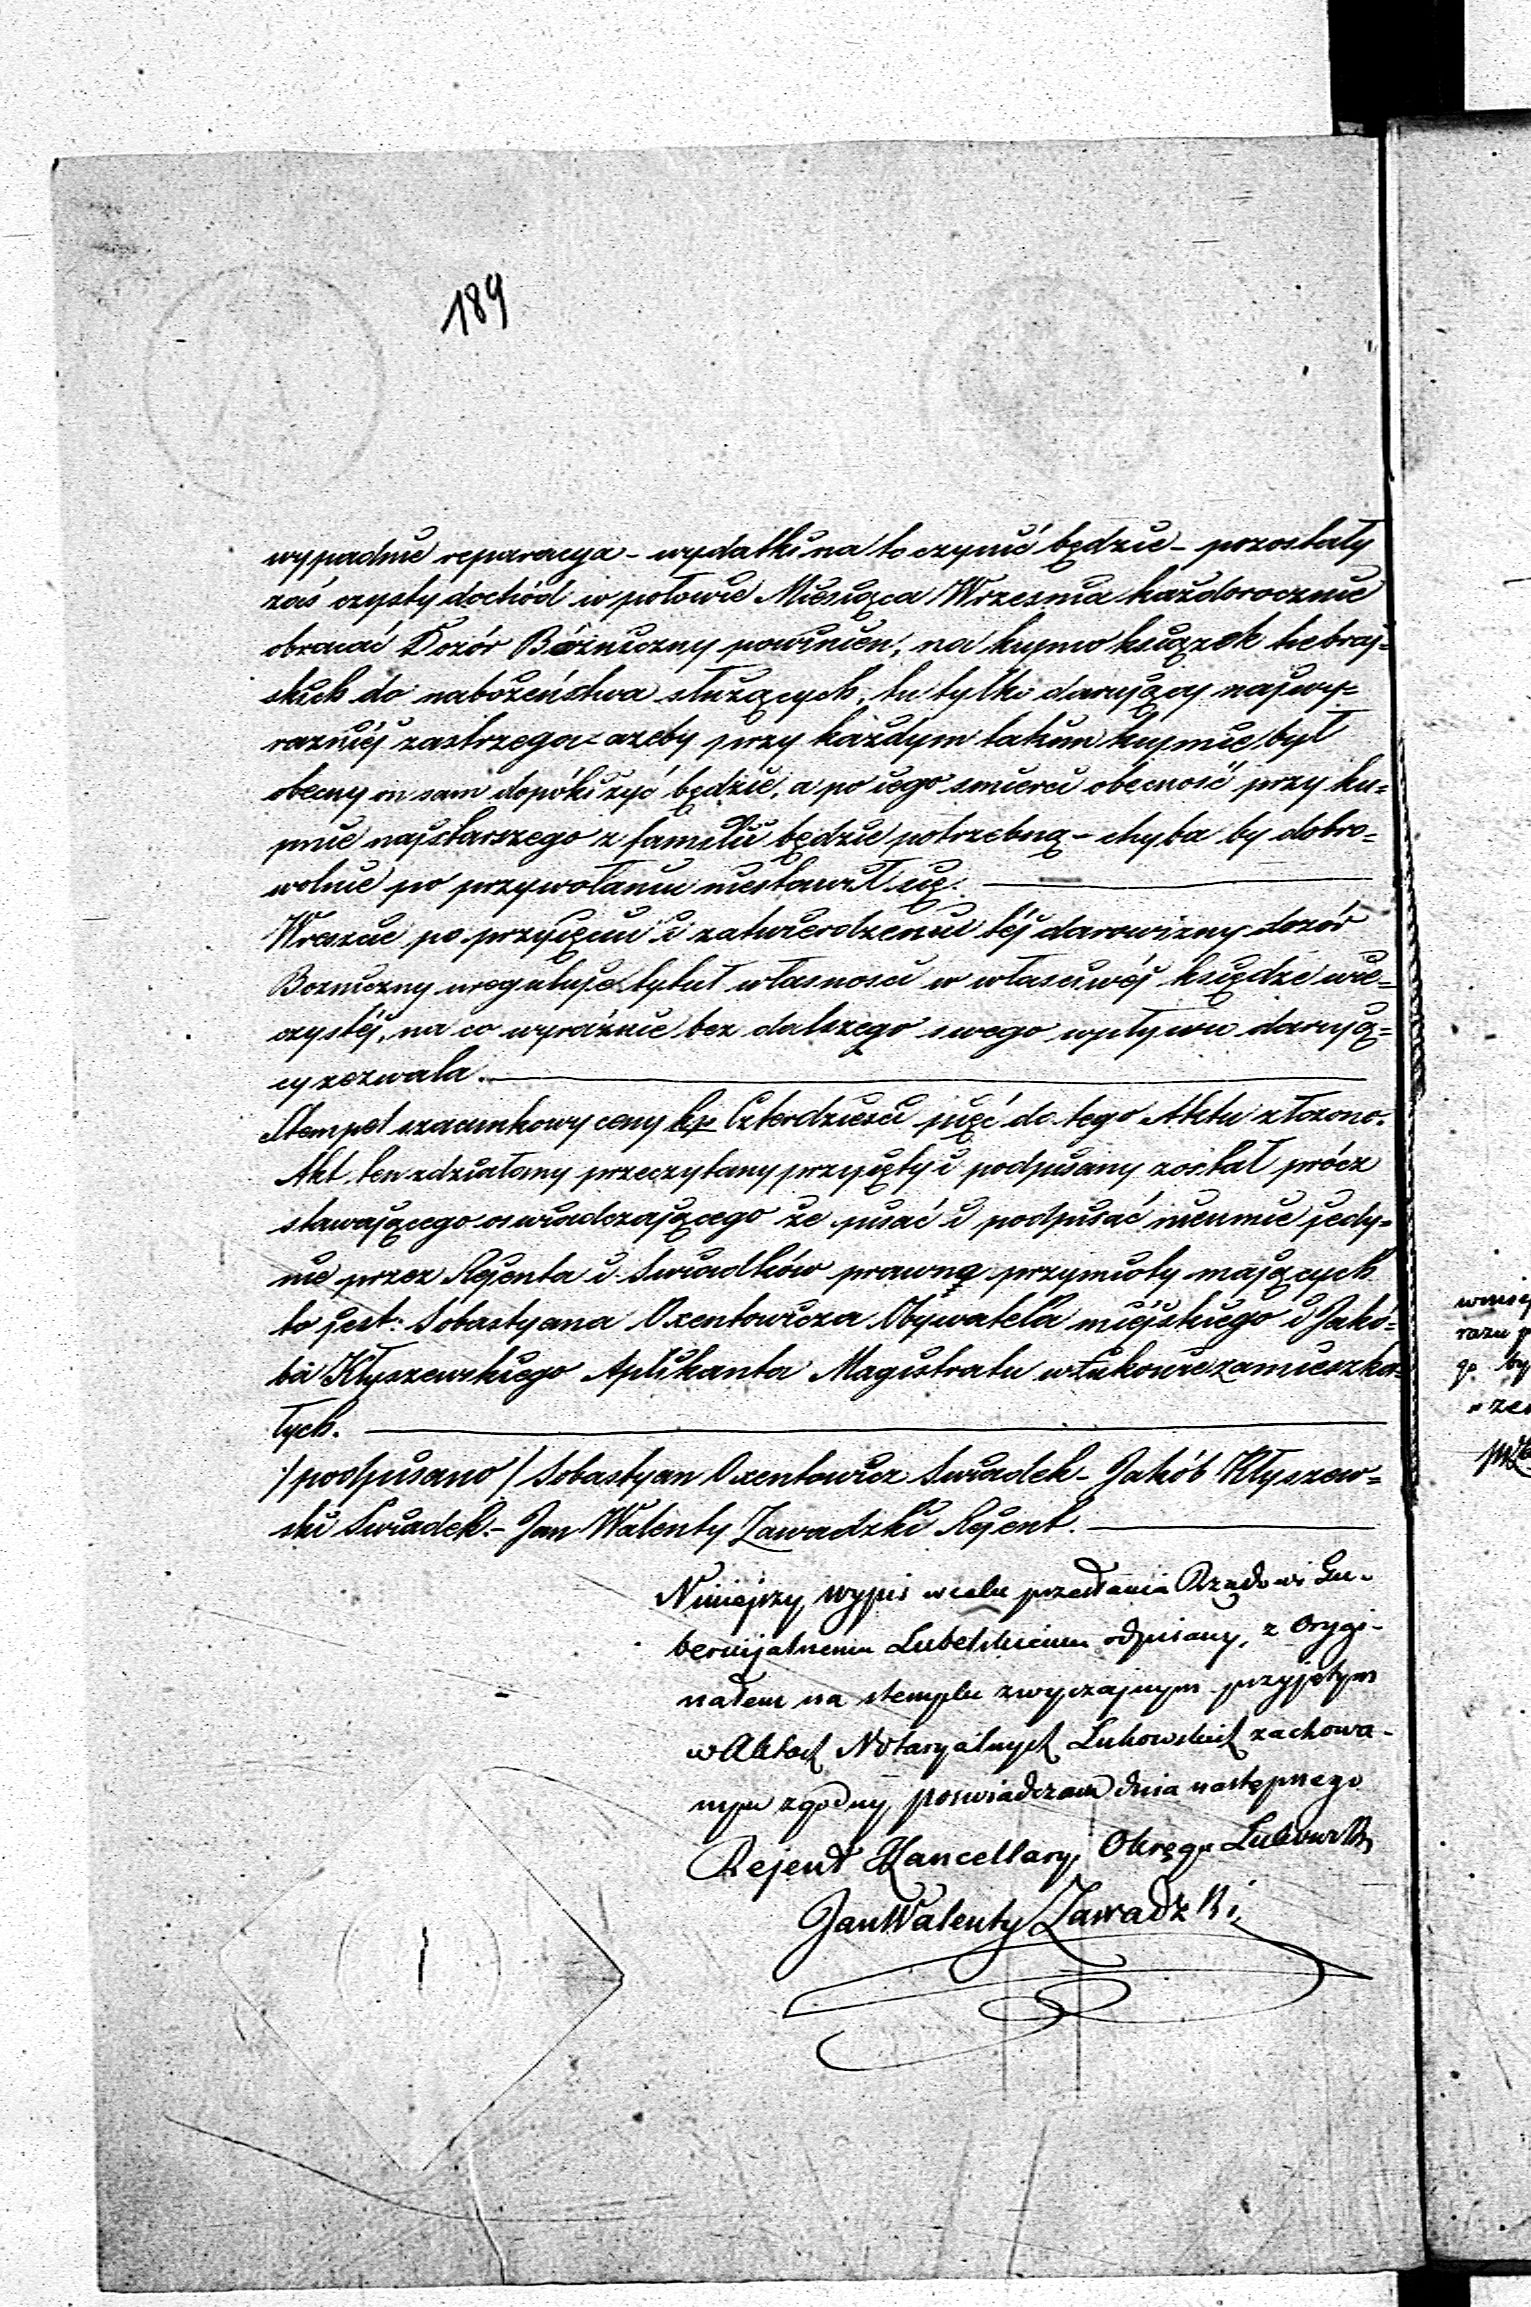 189
wypadnie reparacya - wydatki na to czynić będzie - pozostały
zaś czysty dochód w połowie Miesiąca Września każdorocznie
obracać Dozór Bóżniczny powinien, na kupno książek hebraj=
skich do nabożeństwa służących, tu tylko darujący najwy=
raźniéj zastrzega - ażeby przy każdym takim kupnie był
obecny on sam dopóki żyć będzie, a po iego śmierci obecność przy ku=
pnie najstarszego z familii będzie potrzebną - chyba by dobro=
wolnie po przywołaniu niestawił się.
Wrazie po przyjęciu i zatwierdzeniu téj darowizny dozór
Bozniczny ureguluje tytuł własności w właściwéj księdze wie=
czystéj, na co wyraźnie bez dalszego swego wpływu darują=
cy zezwala.
Stempel szacunkowy ceny kp Czterdzieści pięć do tego Aktu złożono.
Akt ten zdziałany przeczytany przyięty i podpisany został prócz
stawającego oswiadczającego że pisać i podpisać nieumie jedy=
nie przez Rejenta i Swiadków prawne przymioty mających
to jest: Sobastyana Oxentowicza Obywatela miéjskiego i Jakó=
ba Kłyszewskiego Aplikanta Magistratu w Łukowie zamieszka=
łych.
/podpisano/ Sobastyan Oxentowicz Swiadek - Jakób Kłyszew=
ski Swiadek. - Jan Walenty Zawadzki Rejent.
Niniejszy wypis w celu przesłania Rządowi Gu-
bernijalnemu Lubelskiemu odpisany, z Orygi-
nałem na stemplu zwyczajnym przyjętym
w Aktach Notaryalnych Łukowskich zachowa-
nym zgodny poswiadczam dnia następnego
Rejent Kancellaryi Okręgu Łukowsk
Jan Walenty Zawadzki